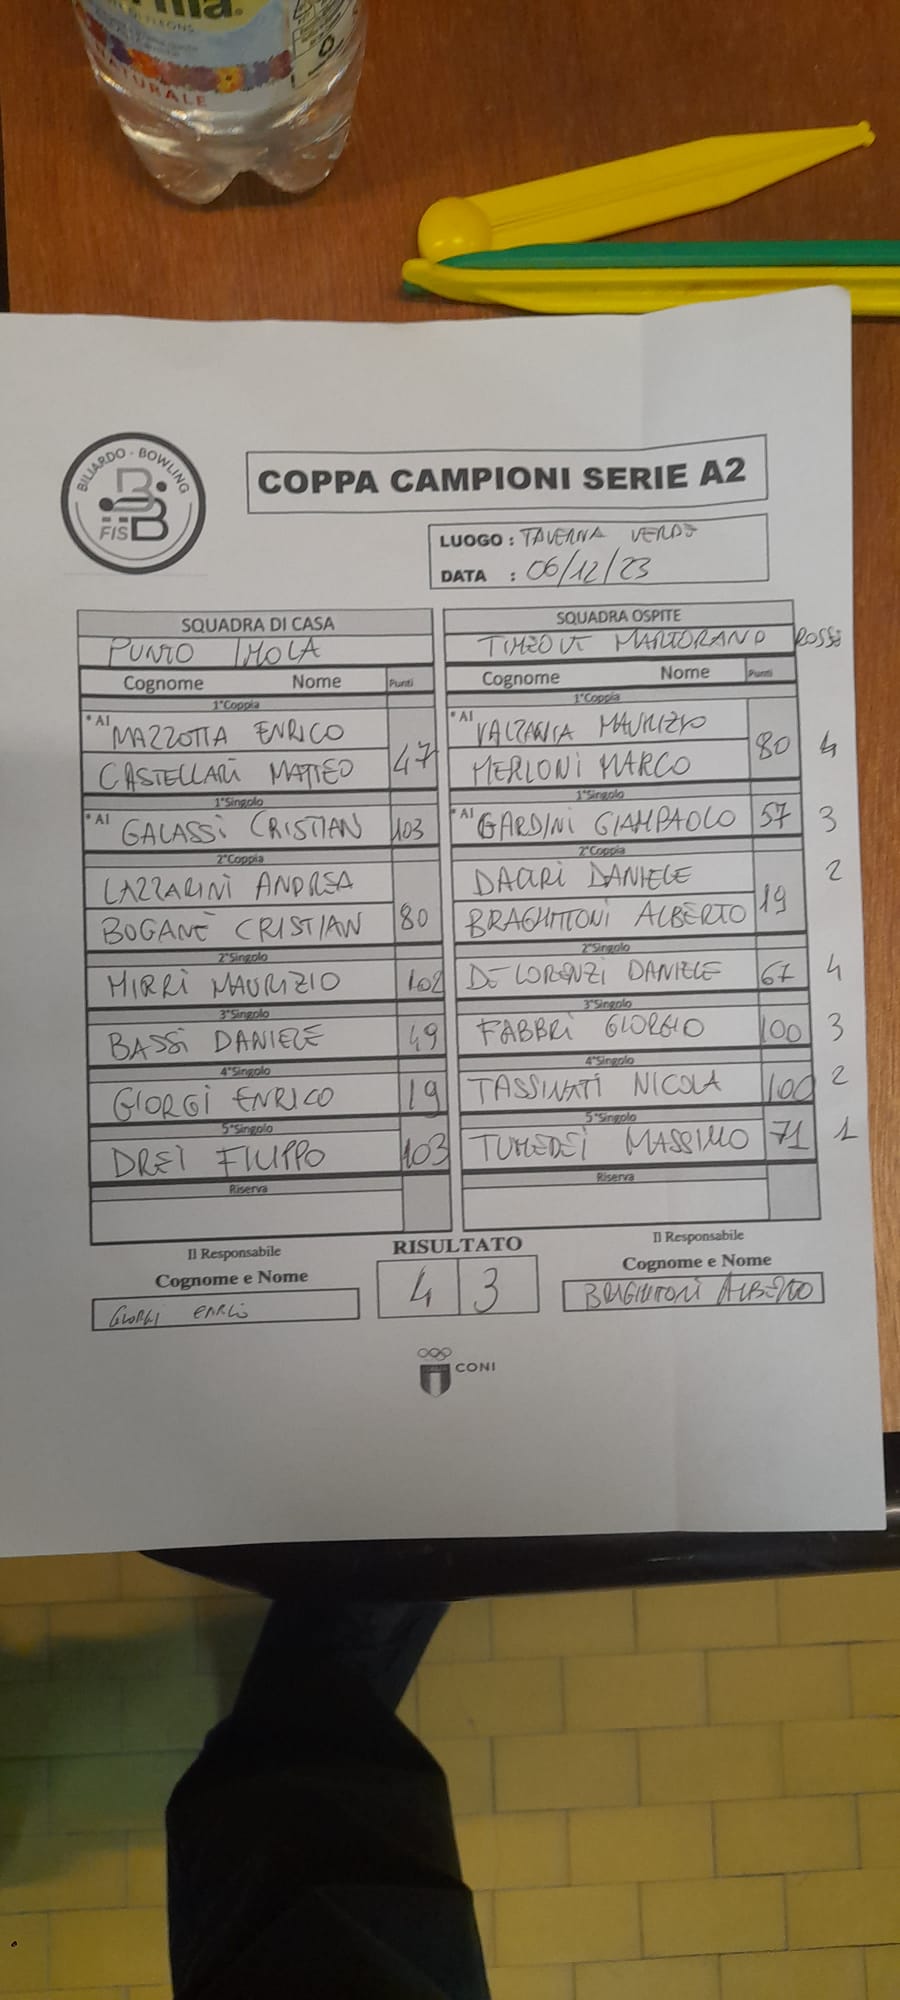 NATURALE
0
BILIARDO - BOWLING
FISBB
COPPA CAMPIONI SERIE A2
LUOGO : TAVERNA VERDE
DATA : 06/12/23
SQUADRA DI CASA SQUADRA OSPITE
PUNTO IMOLA TIMEOUT MARTORANO ROSSI
Cognome Nome Punti Cognome Nome Punti
1°Coppia 1°Coppia
*A1 MAZZOTTA ENRICO *A1 VALZANIA MAURIZIO
CASTELLARI MATTEO 47 MERLONI MARCO 80 4
1°Singolo 1°Singolo
*A1 GALASSI CRISTIAN 103 *A1 GARDINI GIAMPAOLO 57 3
2°Coppia 2°Coppia
LAZZARINI ANDREA DACRI DANIELE 2
BOGANÈ CRISTIAN 80 BRAGHITTONI ALBERTO 19
2°Singolo 2°Singolo
MIRRI MAURIZIO 102 DE LORENZI DANIELE 67 4
3°Singolo 3°Singolo
BASSI DANIELE 49 FABBRI GIORGIO 100 3
4°Singolo 4°Singolo
GIORGI ENRICO 19 TASSINATI NICOLA 100 2
5°Singolo 5°Singolo
DREI FILIPPO 103 TUMEDEI MASSIMO 71 1
Riserva Riserva
Il Responsabile RISULTATO Il Responsabile
Cognome e Nome 4 3 Cognome e Nome
GIORGI ENRICO BRAGHITTONI ALBERTO
CONI